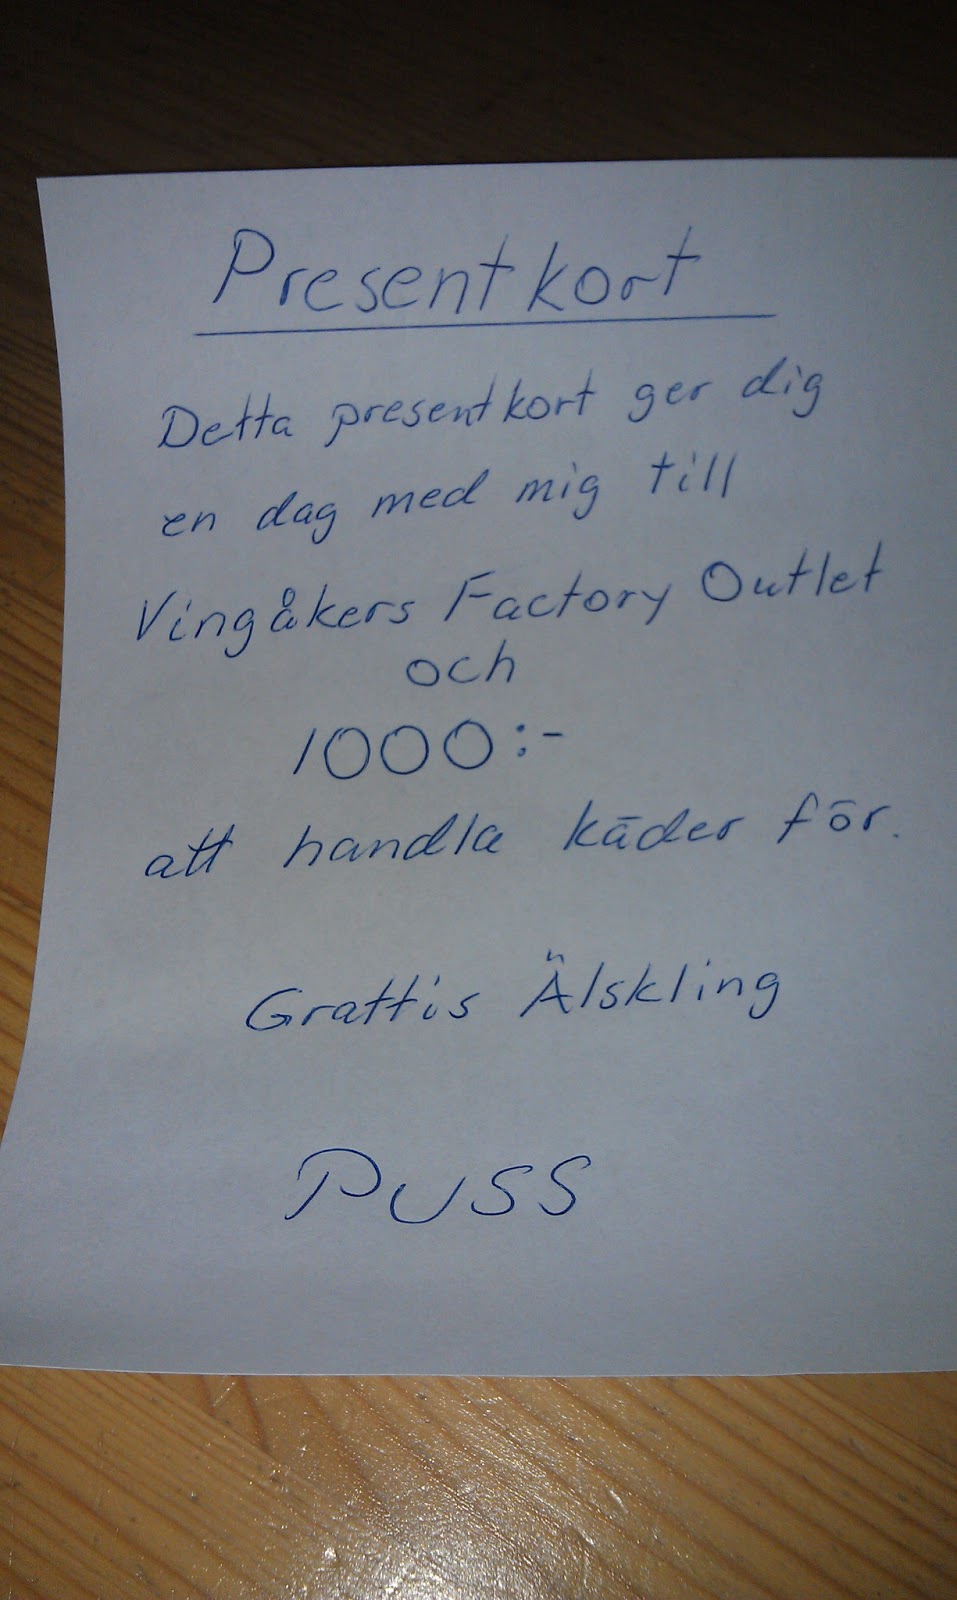 Presentkort
Detta presentkort ger dig
en dag med mig till
Vingåkers Factory Outlet
och
1000:-
att handla käder för.
Grattis Älskling
PUSS